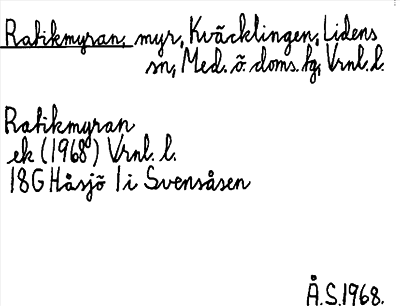 Ratikmyran, myr, Kväcklingen, Lidens
sn, Med. ö. doms. fg, Vrnl. l.
Ratikmyran
ek (1968) Vrnl. l.
18G Håsjö 1i Svensåsen
Å.S. 1968.